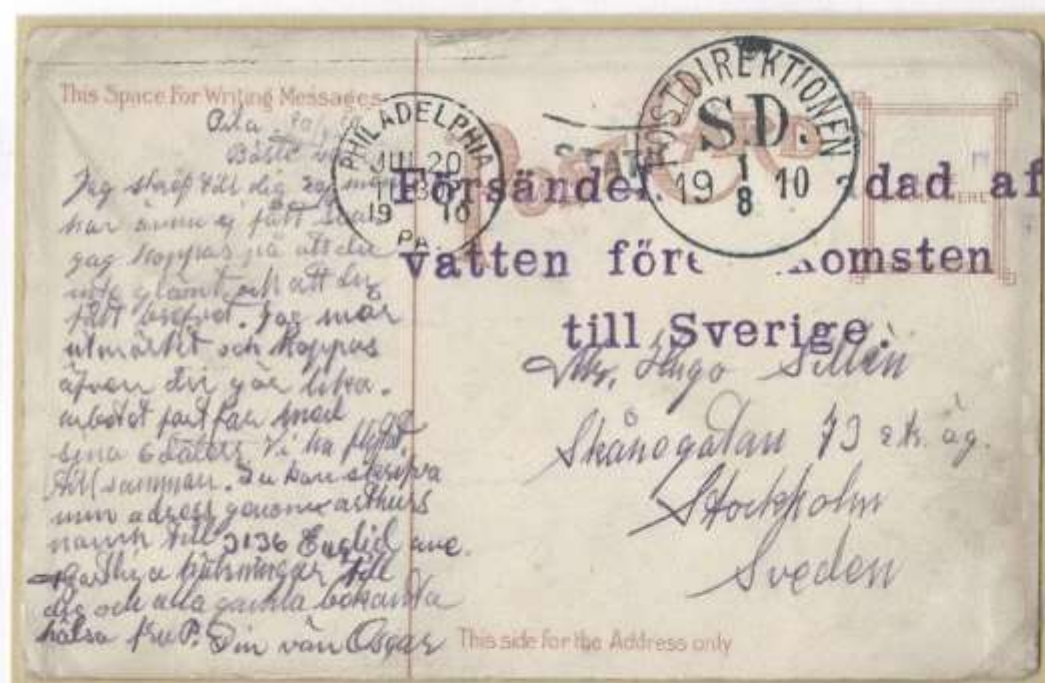 This Space For Writing Messages
Bästе
Jag skref till dig
har ännu ej fått
jag hoppas på att du
inte glömt och att du
fått brefvet. Jag mår
utmärkt och hoppas
äfven du gör lika.
arbetet fortfar med
sina 6 dalers Vi ha flyttat
tillsamman. Du kan skrifva
min adress genom arthurs
namn till 3136 Euglid ave.
Hjertliga hälsningar till
dig och alla gamla bekanta
hälsa fru P. Din vän Osgar
PHILADELPHIA
JUL 20
1910
PA
POSTDIREKTIONEN
S.D.
1
19 10
8
Försändel dad af
vatten före komsten
till Sverige.
Mr. Hugo Sillén
Skånegatan 73
Stockholm
Sveden
This side for the Address only